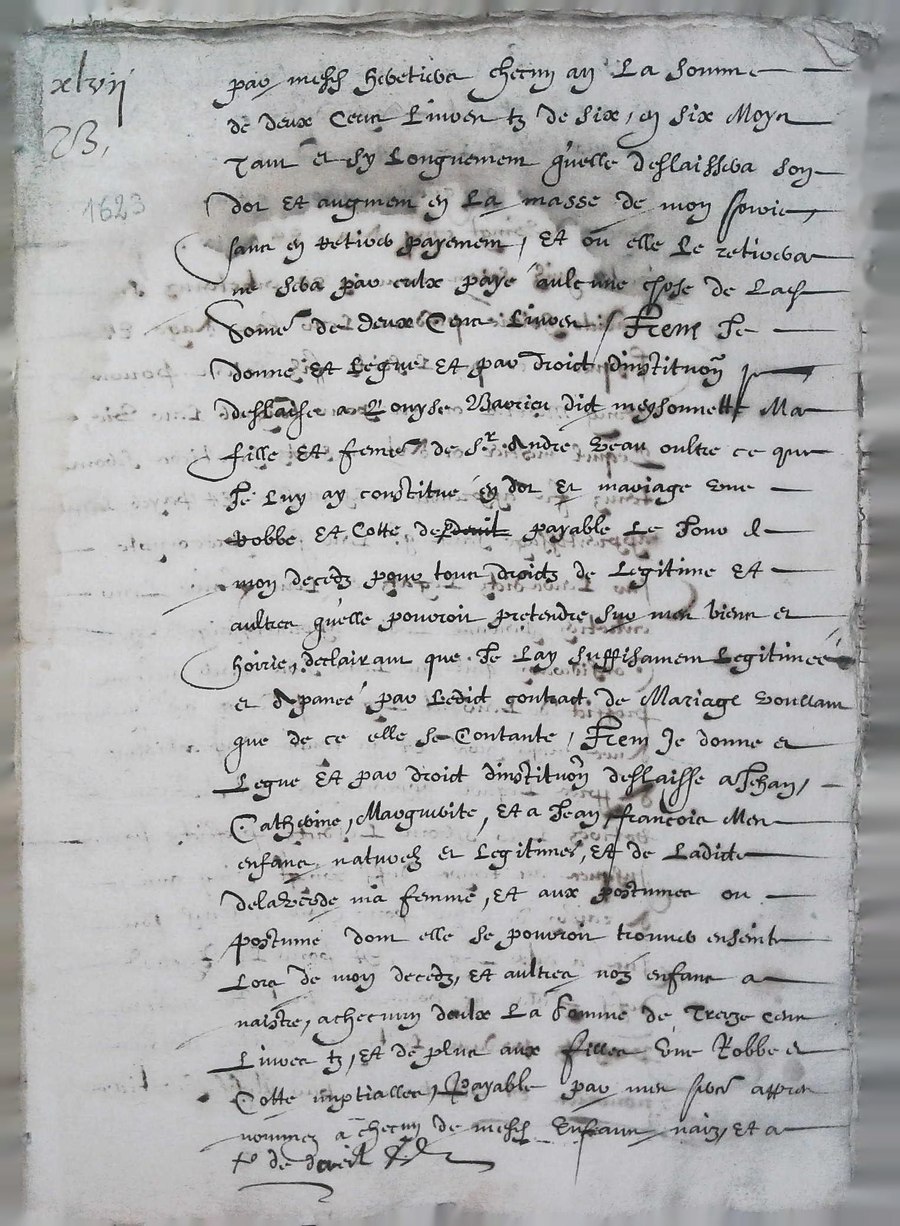 xlvij
23,
1623
par mesd heretiers checun an La Somme
de deux Cens Livres tz de six, en six Moys
Tant et sy Longuement quelle deslaissera son
dot Et augment en La masse de mon heritie,
sans en retirer payement, Et ou elle Le retirera
ne sera par eulx payé aulcune chose de Lad
Some de deux Cens Livres / Item Je
donne Et Legue Et par droict dinstituon
deslaisse a Loyse dict meysonnette Ma
fille Et feme de Sr Andre Veau oultre ce que
Je Luy ay constitué en dot Et mariage une
Robbe Et Cotte de deuil payable Le Jour de
mon decedz pour tous droictz de Legitime Et
aultres quelle pouroit pretendre sur mes biens et
hoirie, declairant que Je Lay suffisament Legitimée
et Apanée par Ledict contract de Mariage voullant
que de ce elle se Contante, Item Je donne et
Legue Et par droict dinstituon deslaisse a Jehan,
Catherine, Marguerite, Et a Jean francois Mes
enfans naturelz et Legitimes, Et de Ladicte
ma femme, Et aux postumes ou
postume dont elle se pouroit trouver enseinte
Lors de mon decedz, Et aultres noz enfans a
naistre, a checun deulx La Somme de Treize cens
Livres tz, Et de plus aux filles Une Robbe et
Cotte nuptialles, Payable par mes appres
nommez a checun de mesd Enfans naiz, Et a
de deuil